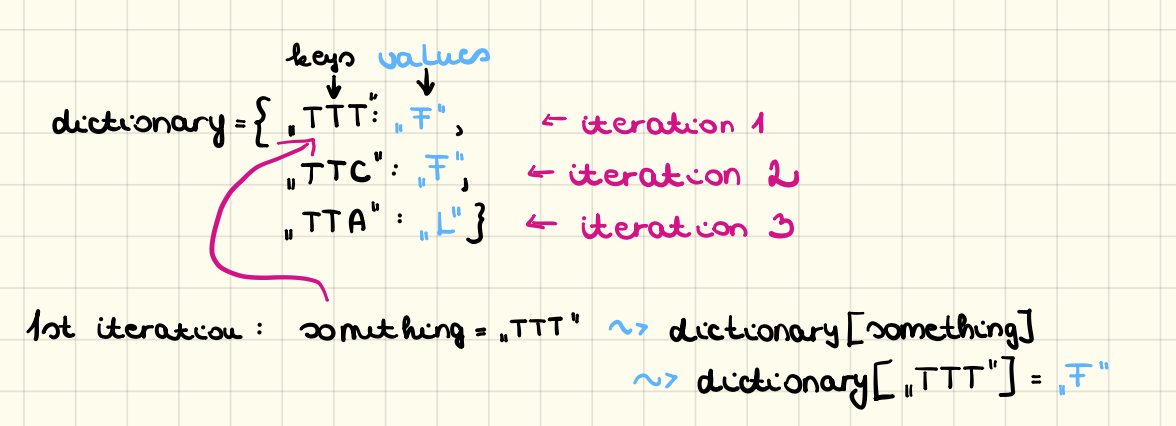 keys values
dictionary = { „TTT": „F", ← iteration 1
„TTC" : „F", ← iteration 2
„TTA" : „L" } ← iteration 3
1st iteration : something = „TTT" ~> dictionary[something]
~> dictionary[„TTT"] = „F"